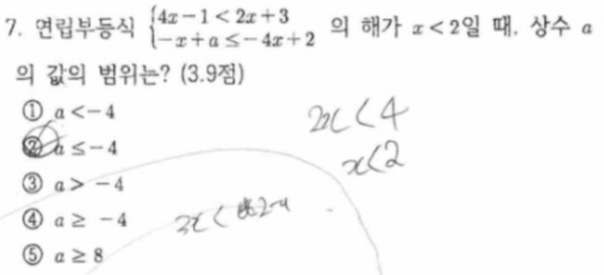 7. 연립부등식 {4x-1<2x+3
-x+a≤-4x+2 의 해가 x<2일 때, 상수 a
의 값의 범위는? (3.9점)
① a<-4
② a≤-4
③ a> -4
④ a≥ -4
⑤ a≥8
2x<4
x<2
3x< 2-a